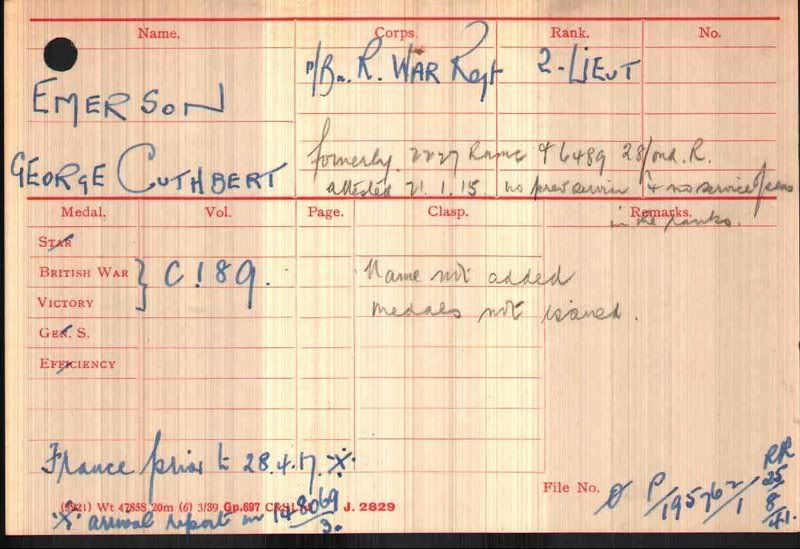 Name. Corps. Rank. No.
EMERSON
/Bn. R. WAR Regt 2-LIEUT
GEORGE CUTHBERT
formerly 2227 RAMC & 6489 28/Lond. R.
attested 21.1.15 no prev service & no service o/seas
in the ranks.
Medal. Vol. Page. Clasp. Remarks.
STAR
BRITISH WAR } C!89. Name not added
VICTORY medals not issued.
GEN. S.
EFFICIENCY
France prior to 28.4.17. ※
File No. P/195762/1 RR 25/8/41.
Wt 47858 20m (6) 3/39 Gp.697 J. 2829
※ arrival report in 148069/3.